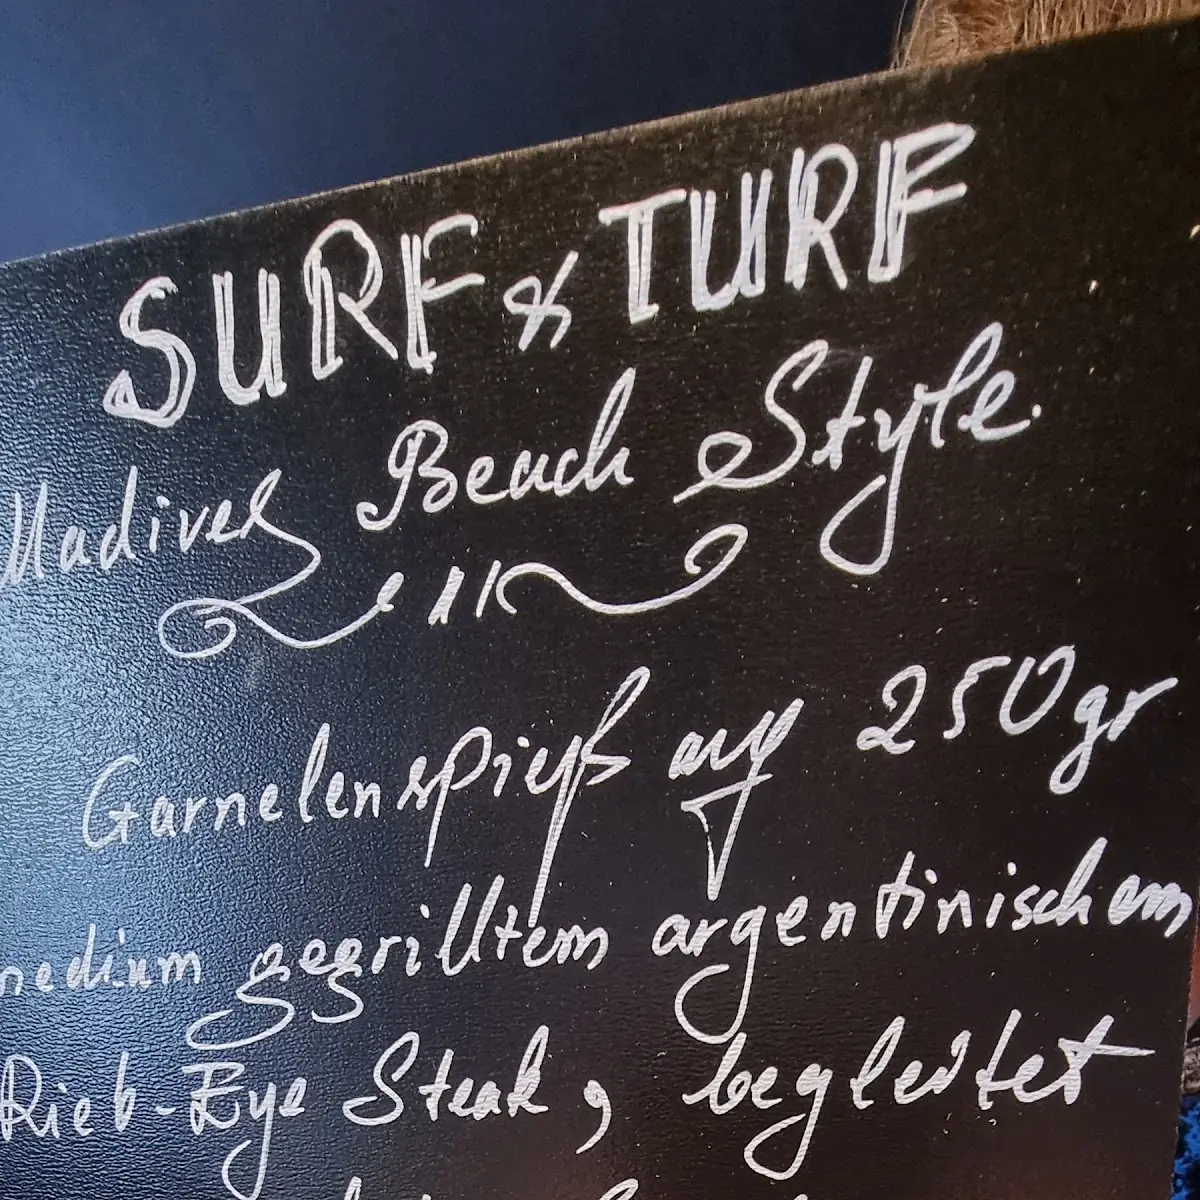 SURF & TURF
Madives Beach Style
Garnelenspieß auf 250gr
medium gegrilltem argentinischem
Rieb-Eye Steak, begleitet